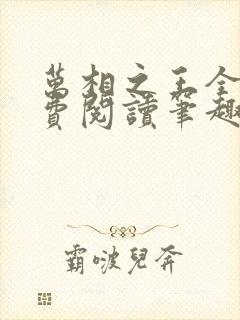 萬相之王全
費閱讀筆趣
霸啵兒奔